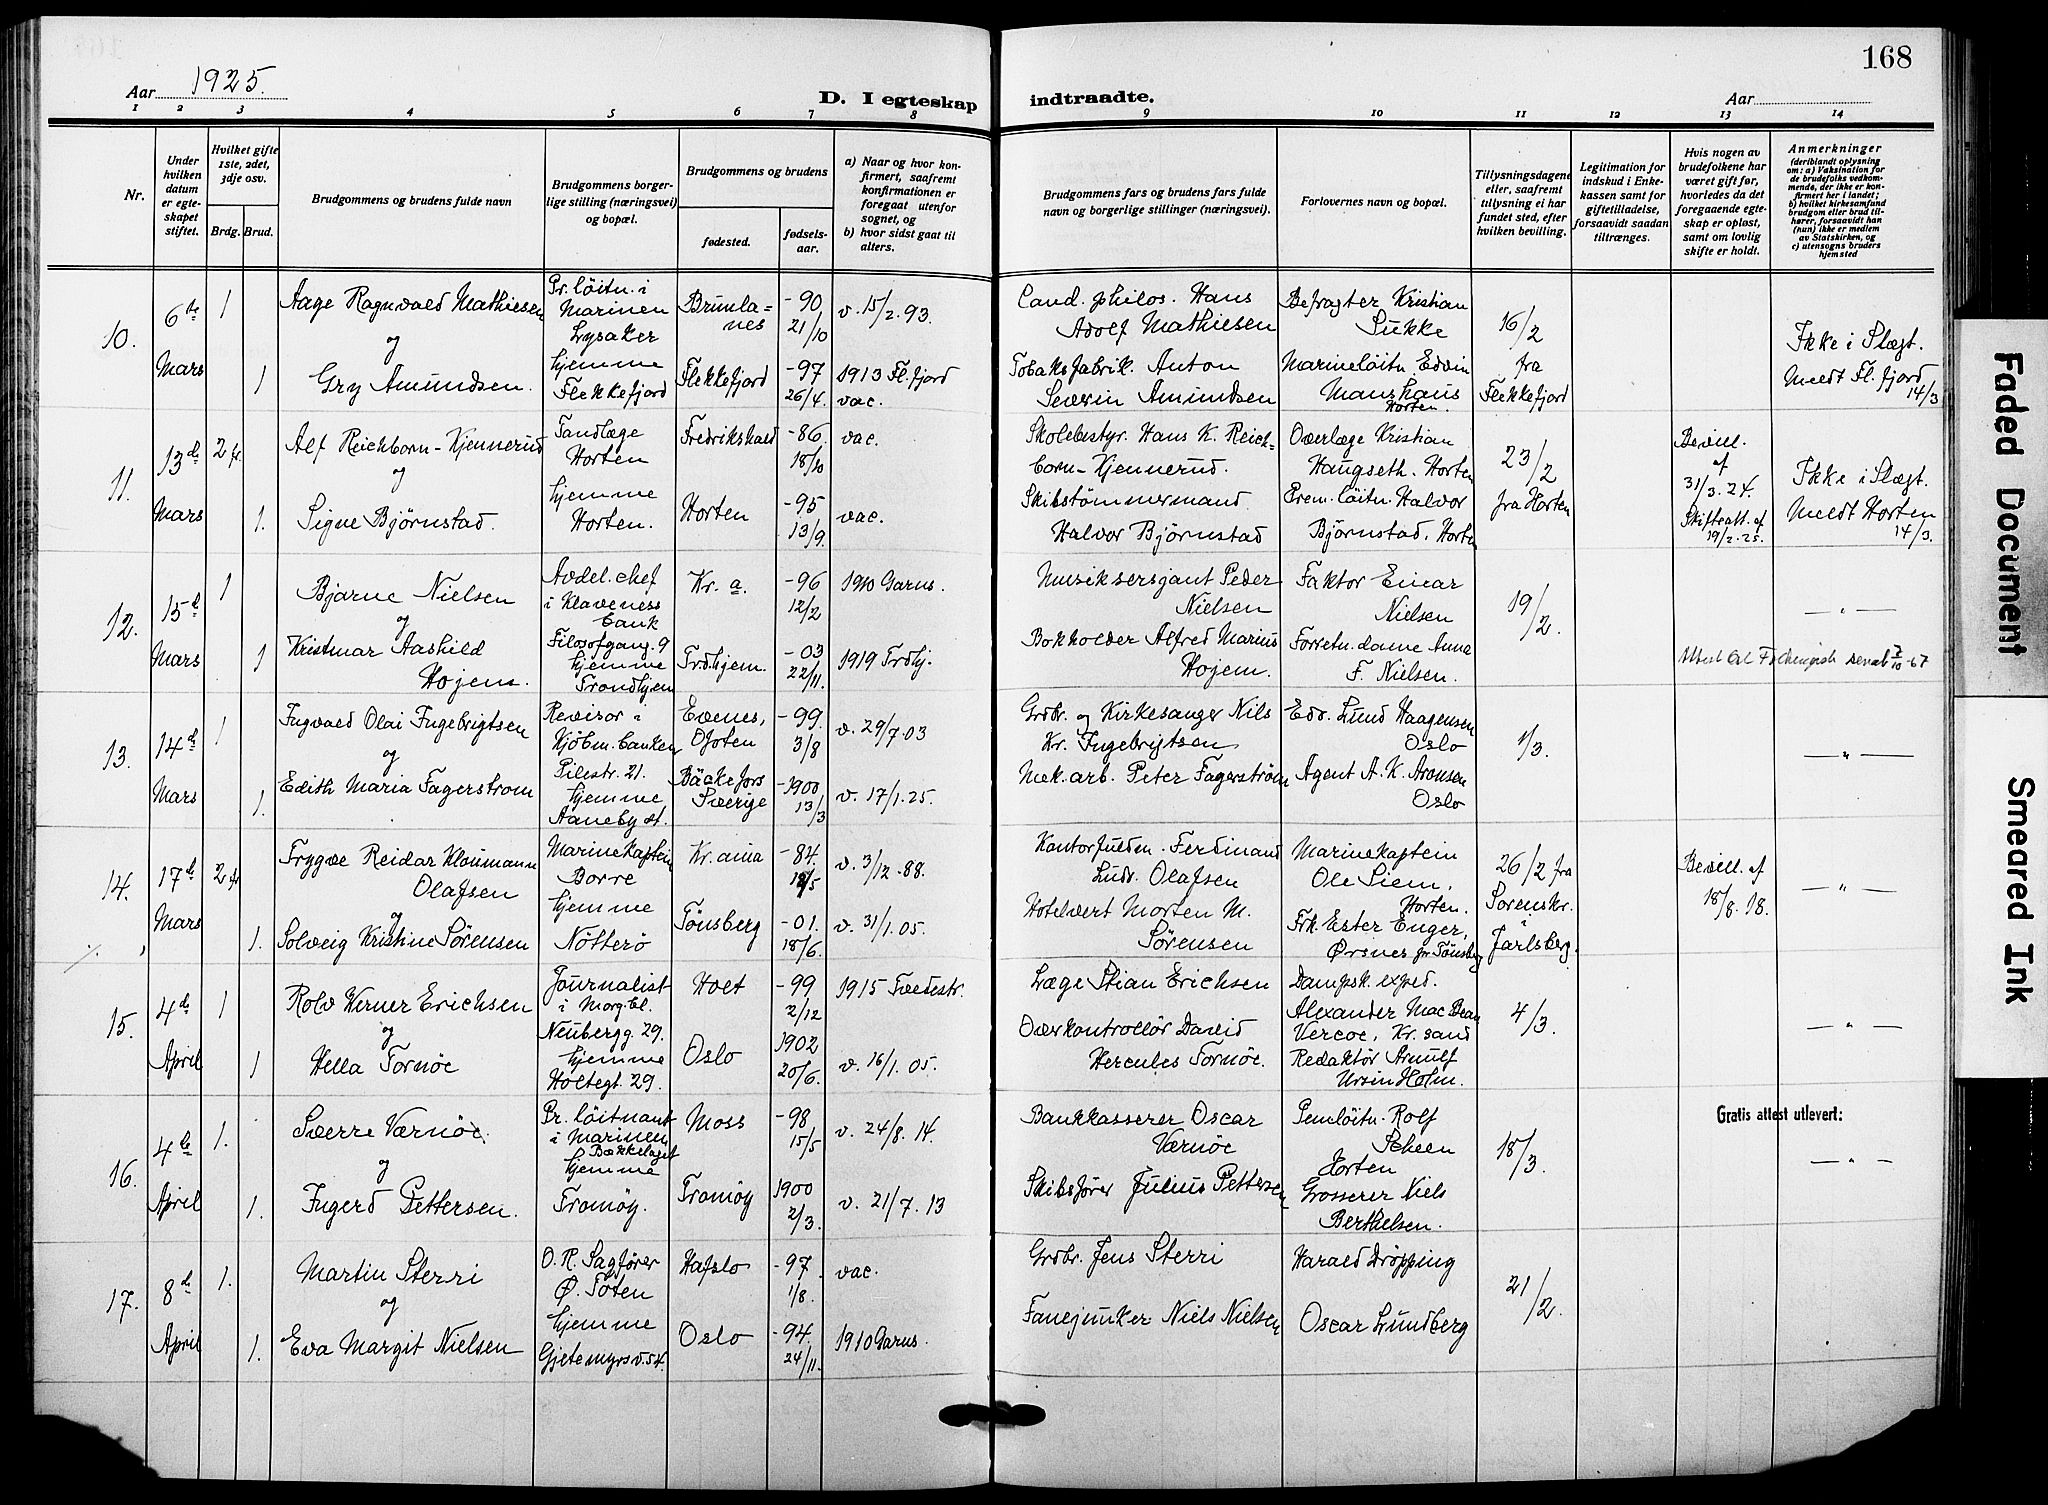 168
Aar 1925.
D. I egteskap indtraadte.
Aar
1 2 3 4 5 6 7 8 9 10 11 12 13 14
Nr.
Under hvilken datum er egte-skapet stiftet.
Hvilket gifte 1ste, 2det, 3dje osv.
Brdg. Brud.
Brudgommens og brudens fulde navn
Brudgommens borger-lige stilling (næringsvei) og bopæl.
Brudgommens og brudens
fødested.
fødsels-aar.
a) Naar og hvor kon-firmert, saafremt konfirmationen er foregaat utenfor sognet, og
b) hvor sidst gaat til alters.
Brudgommens fars og brudens fars fulde navn og borgerlige stillinger (næringsvei).
Forlovernes navn og bopæl.
Tillysningsdagene eller, saafremt tillysning ei har fundet sted, efter hvilken bevilling.
Legitimation for indskud i Enke-kassen samt for giftetilladelse, forsaavidt saadan tiltrænges.
Hvis nogen av brudefolkene har været gift før, hvorledes da det foregaaende egte-skap er opløst, samt om lovlig skifte er holdt.
Anmerkninger
(deriblandt oplysning om: a) Vaksination for de brudefolks vedkom-mende, der ikke er kon-firmert her i landet; b) hvilket kirkesamfund brudgom eller brud til-hører, forsaavidt han (hun) ikke er medlem av Statskirken, og c) utensogns bruders hjemsted
10. 6te Mars 1 Aage Ragnvald Mathiesen Pr. løitn. i Marinen Lysaker Brunla=nes -90 21/10 v. 15/2.93. Cand. philos. Hans Adolf Mathiesen Befragter Kristian Sukke 16/2 fra Flekkefjord Ikke i Slægt. Meldt Fl. fjord 14/3
og
1 Gry Amundsen. hjemme Flekkefjord Flekkefjord -97 26/4. 1913 Fl. fjord vac. Tobaksfabrik. Anton Severin Amundsen Marineløitn. Edvin Manshaus Horten.
11. 13de Mars 2 fr. Alf Reichborn-Kjennerud Tandlæge Horten Fredrikshald -86. 18/10 vac. Skolebestyr. Hans K. Reich=born-Kjennerud. Overlæge Kristian Haugseth. Horten 23/2 fra Horten Bevill. af 31/3.24. Skifteatt. af 19/2.25. Ikke i Slægt. Meldt Horten 14/3.
og
1. Signe Bjørnstad. hjemme Horten. Horten -95 13/9. vac. Skibstømmermand Halvor Bjørnstad Prem. løitn. Halvor Bjørnstad. Horten
12. 15de Mars 1 Bjarne Nielsen Avdel. chef i Klaveness bank Filosofgang. 9 Kr. a. -96 12/2 1910 Garns. Musiksersjant Peder Nielsen Faktor Einar Nielsen 19/2. — " —
og
1 Kristmar Aashild Hojem. hjemme Trondhjem Trdhjem. -03 22/11. 1919 Trdhj. Bokholder Alfred Marius Hojem. Forretn. dame Anna F. Nielsen.
13. 14de Mars 1 Ingvald Olai Ingebrigtsen Revisor i Kjøbm. banken Pilestr. 21. Evenes, Ofoten -99. 3/8 v. 29/7.03 Grdbr. og Kirkesanger Nils Kr. Ingebrigtsen Edv. Lund Haagensen Oslo 1/3. — " —
og
1. Edith Maria Fagerstrom hjemme Aaneby st. Bäckefors Sverige -1900 13/3 v. 17/1.25. Mek. arb. Peter Fagerström Agent A. K. Aronsen Oslo
14. 17de Mars 2 fr Trygve Reidar Kloumann Olafsen Marinekaptein Borre Kr. ania -84. v. 3/12.88. Kontorfuldm. Ferdinand Ludv. Olafsen Marinekaptein Ole Siem, Horten. 26/2 fra Sorenskr. i Jarlsberg. Bevill. af 18/8.18. — " —
og
1. Solveig Kristine Sørensen hjemme Nötterö Tønsberg -01. 18/6. v. 31/1.05. Hotelvert Morten M. Sørensen Frk. Ester Enger, Ørsnes pr Tønsberg
15. 4de April 1 Rolv Werner Erichsen Journalist i Morg. bl. Neubergg. 29. Holt -99 2/12 1915 Tvedestr. Læge Stian Erichsen Dampsk. exped. Alexander Mac Bean Vercoe, Kr. sand 4/3. — " —
og
1 Hella Tornöe hjemme Holtegt. 29. Oslo 1902 20/6. v. 16/1.05. Overkontrollör David Hercules Tornöe. Redaktör Arnulf Ursin Holm.
16. 4de April 1. Sverre Værnøe. Pr. löitnant i Marinen Bækkelaget Moss -98 15/5 v. 24/8.14. Bankkasserer Oscar Værnöe Pemlöitn. Rolf Scheen Horten 18/3. Gratis attest utlevert: — " —
og
1. Ingerd Pettersen. hjemme Tromöy. Tromöy 1900 2/3. v. 21/7.13 Skibsfører Julius Pettersen Grosserer Niels Berthelsen.
17. 8de April 1. Martin Sterri O. R. Sagfører Ø. Toten Hafslo -97. 1/8. vac. Grdbr. Jens Sterri Harald Drøpping 21/2.
og
1. Eva Margit Nielsen hjemme Gjetemyrsv. 54. Oslo -94. 24/11. 1910 Garns. Fanejunker Niels Nielsen Oscar Lundberg
Faded Document
Smeared Ink